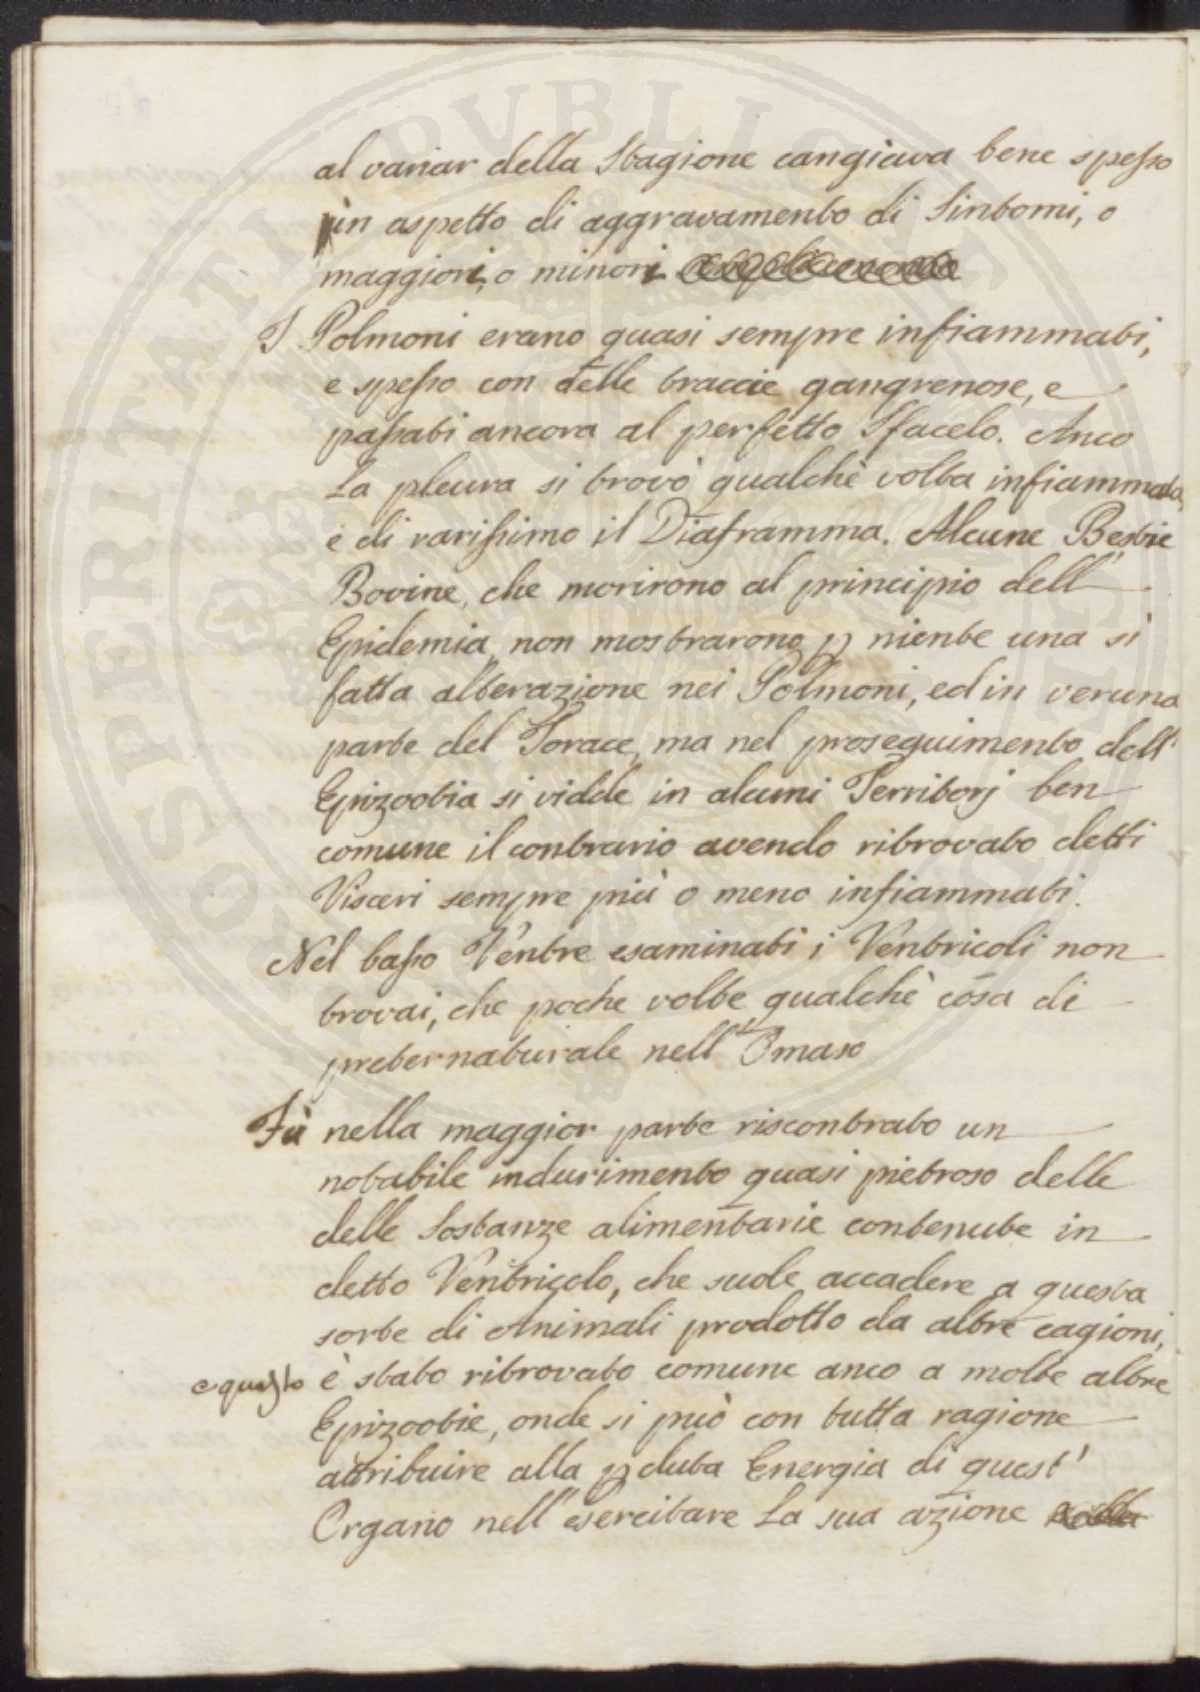 al variar della Stagione cangiava bene spesso
in aspetto di aggravamento di Sintomi, o
maggiori, o minori
I Polmoni erano quasi sempre infiammati,
e spesso con delle traccie gangrenose, e
passati ancora al perfetto Sfacelo. Anco
La pleura si trovò qualchè volta infiammata,
e di rarissimo il Diaframma. Alcune Bestie
Bovine, che morirono al principio dell'
Epidemia, non mostrarono p niente una sì
fatta alterazione nei Polmoni, ed in veruna
parte del Torace, ma nel proseguimento dell'
Epizootia si vidde in alcuni Territorj ben
comune il contrario avendo ritrovato detti
Visceri sempre più o meno infiammati.
Nel basso Ventre esaminati i Ventricoli non
trovai, che poche volte qualchè cosa di
preternaturale nell'Omaso
Fù nella maggior parte riscontrato un
notabile indurimento quasi pietroso delle
delle Sostanze alimentarie contenute in
detto Ventricolo, che suole accadere a questa
sorte di Animali prodotto da altre cagioni,
e questo è stato ritrovato comune anco a molte altre
Epizootie, onde si può con tutta ragione
attribuire alla pduta Energia di quest'
Organo nell'esercitare La sua azione
PROSPERITATI PUBLICAE